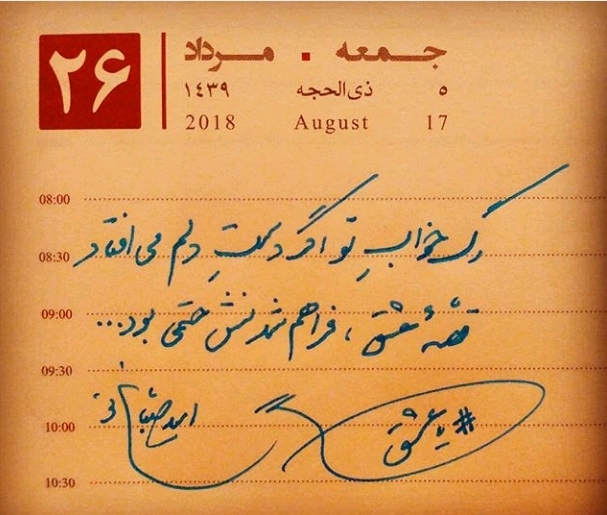 جمعه . مرداد ۲۶
۵ ذی‌الحجه ۱۴۳۹
17 August 2018
08:00
رگ خوابِ تو اگر دستِ دلم می افتاد
08:30
09:00
قصهٔ عشق، فراهم شدنش حتمی بود...
09:30
#یاعشق
امید صباغ نو
10:00
10:30